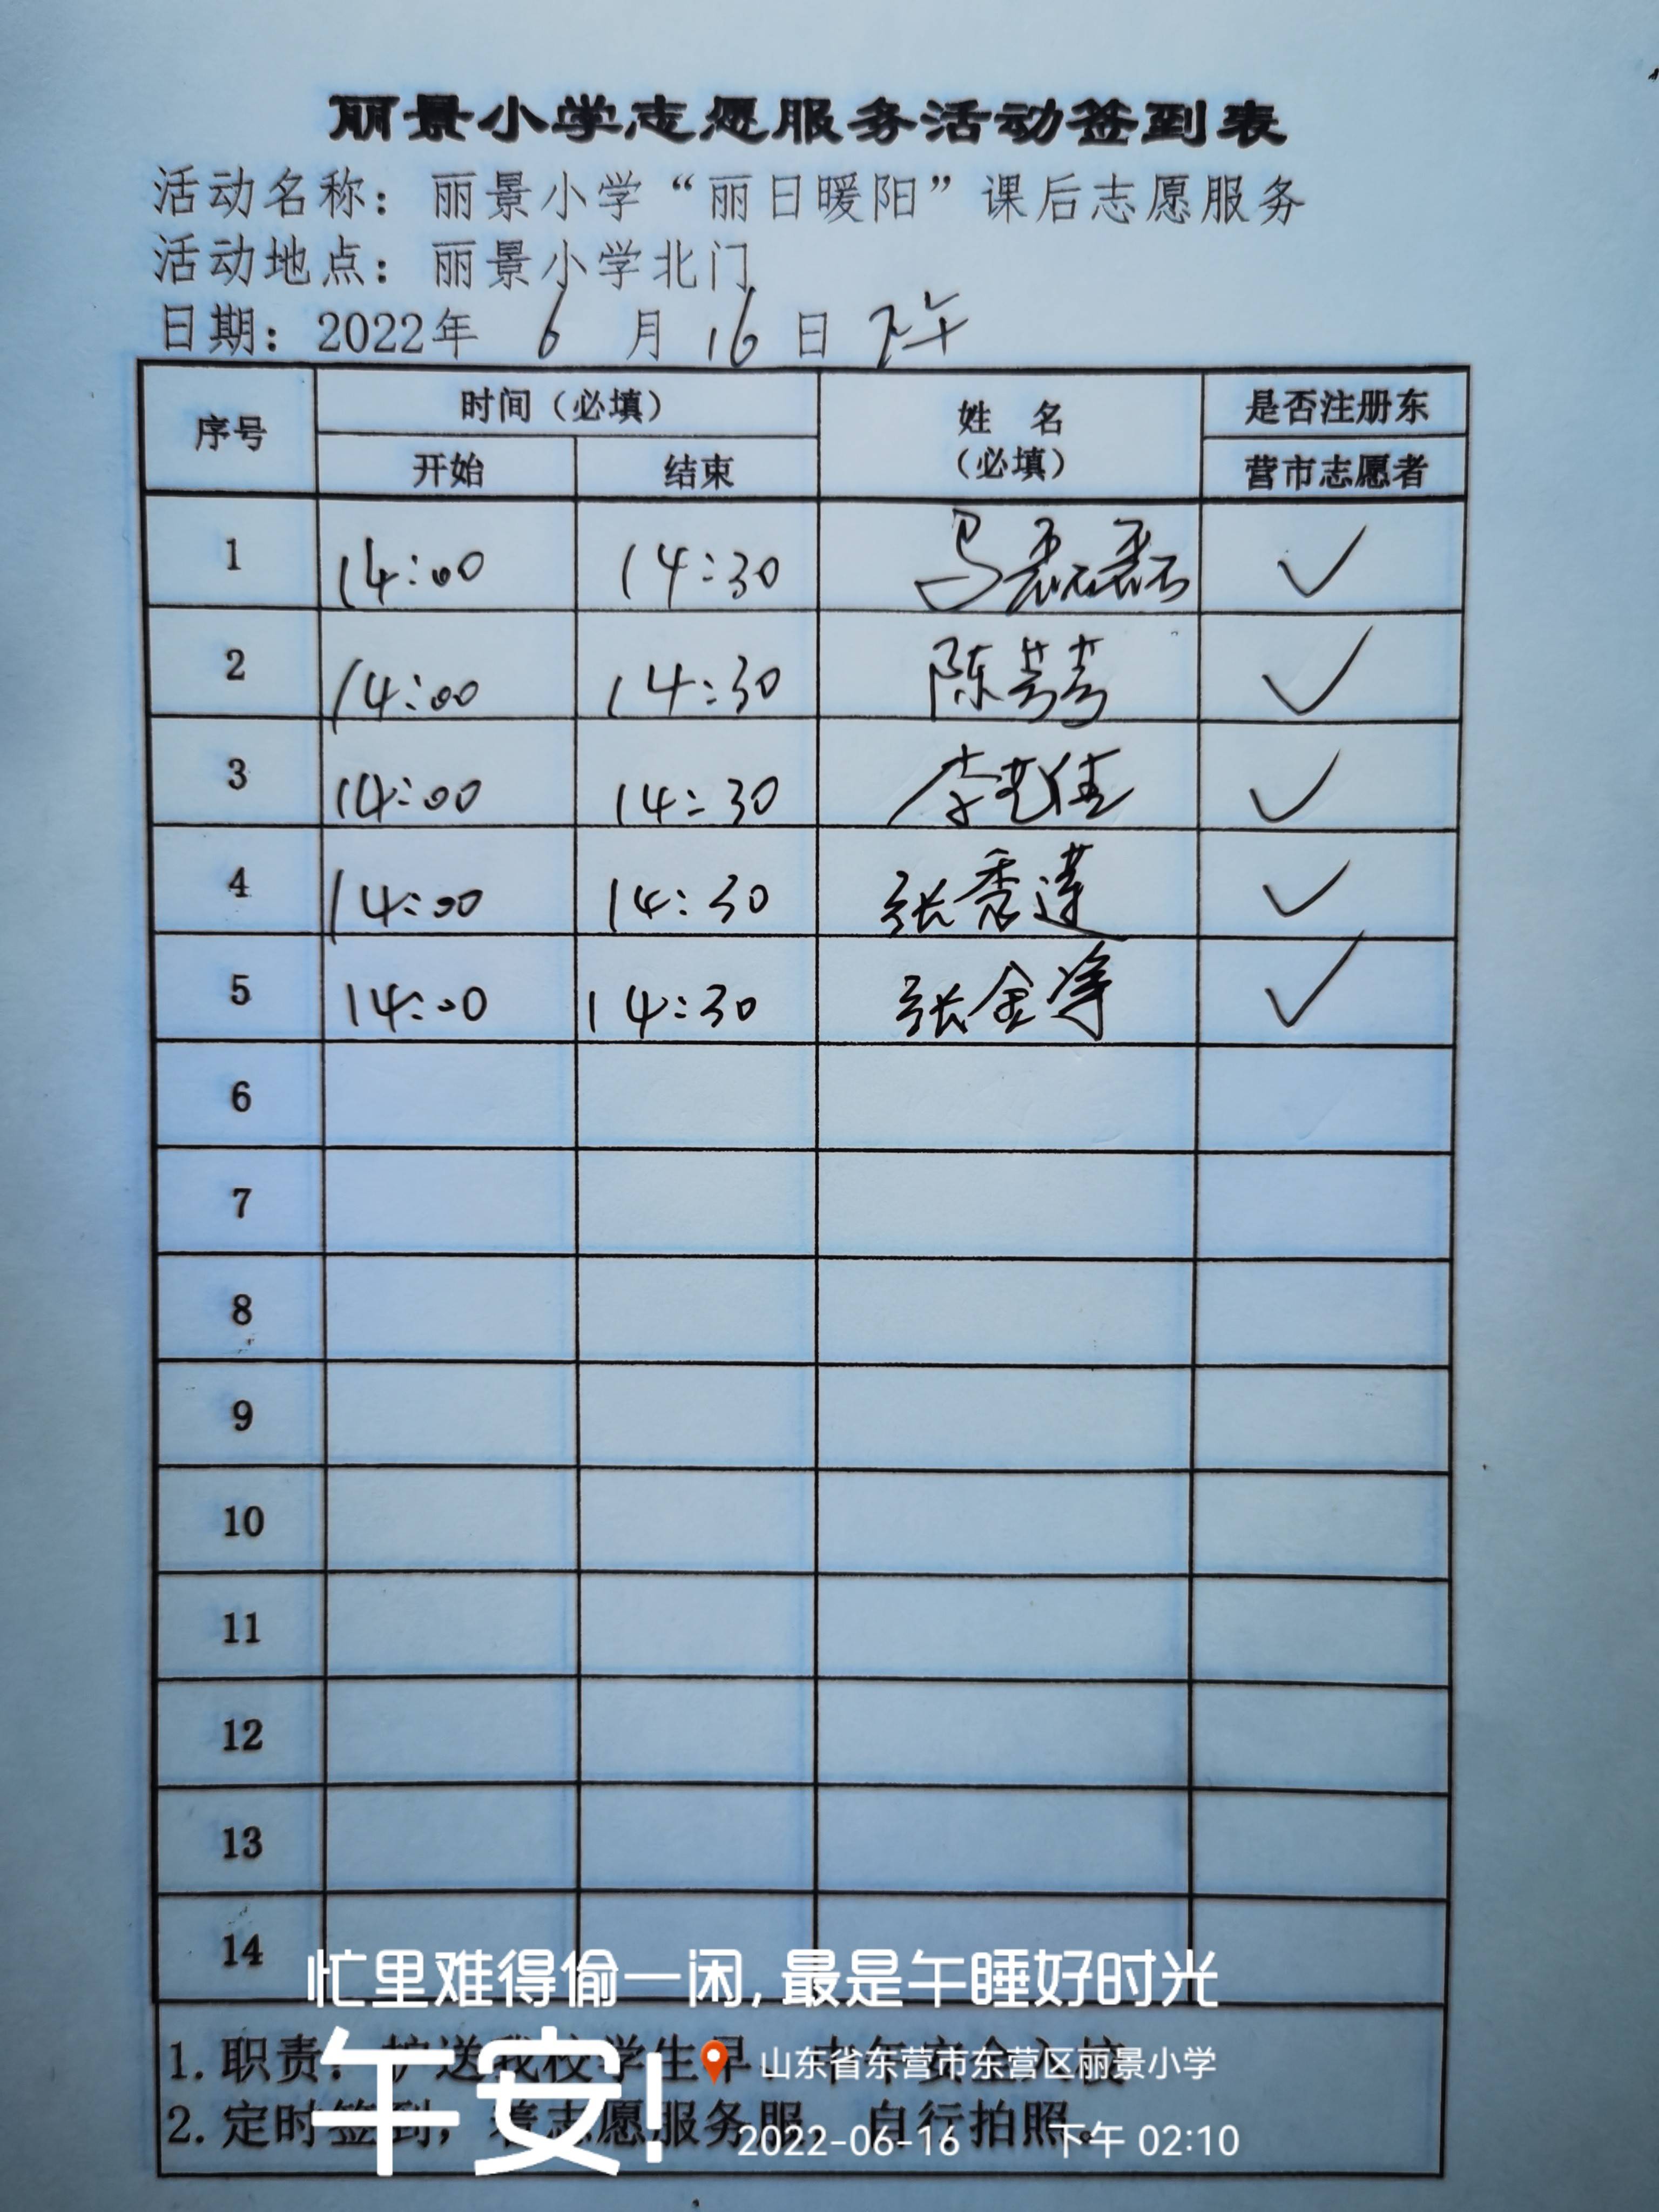 丽景小学志愿服务活动签到表
活动名称：丽景小学“丽日暖阳”课后志愿服务
活动地点：丽景小学北门
日期：2022年 6 月 16 日 下午
序号 时间（必填） 姓 名（必填） 是否注册东营市志愿者
开始 结束
1 14:00 14:30 马磊磊 ✓
2 14:00 14:30 陈芳芳 ✓
3 14:00 14:30 李艺佳 ✓
4 14:00 14:30 张秀莲 ✓
5 14:00 14:30 张金 ✓
6
7
8
9
10
11
12
13
14
忙里难得偷一闲,最是午睡好时光
1.职责：护送我校学生早
2.定时签到，着志愿服务服 自行拍照。
午安!
山东省东营市东营区丽景小学
2022-06-16 下午 02:10